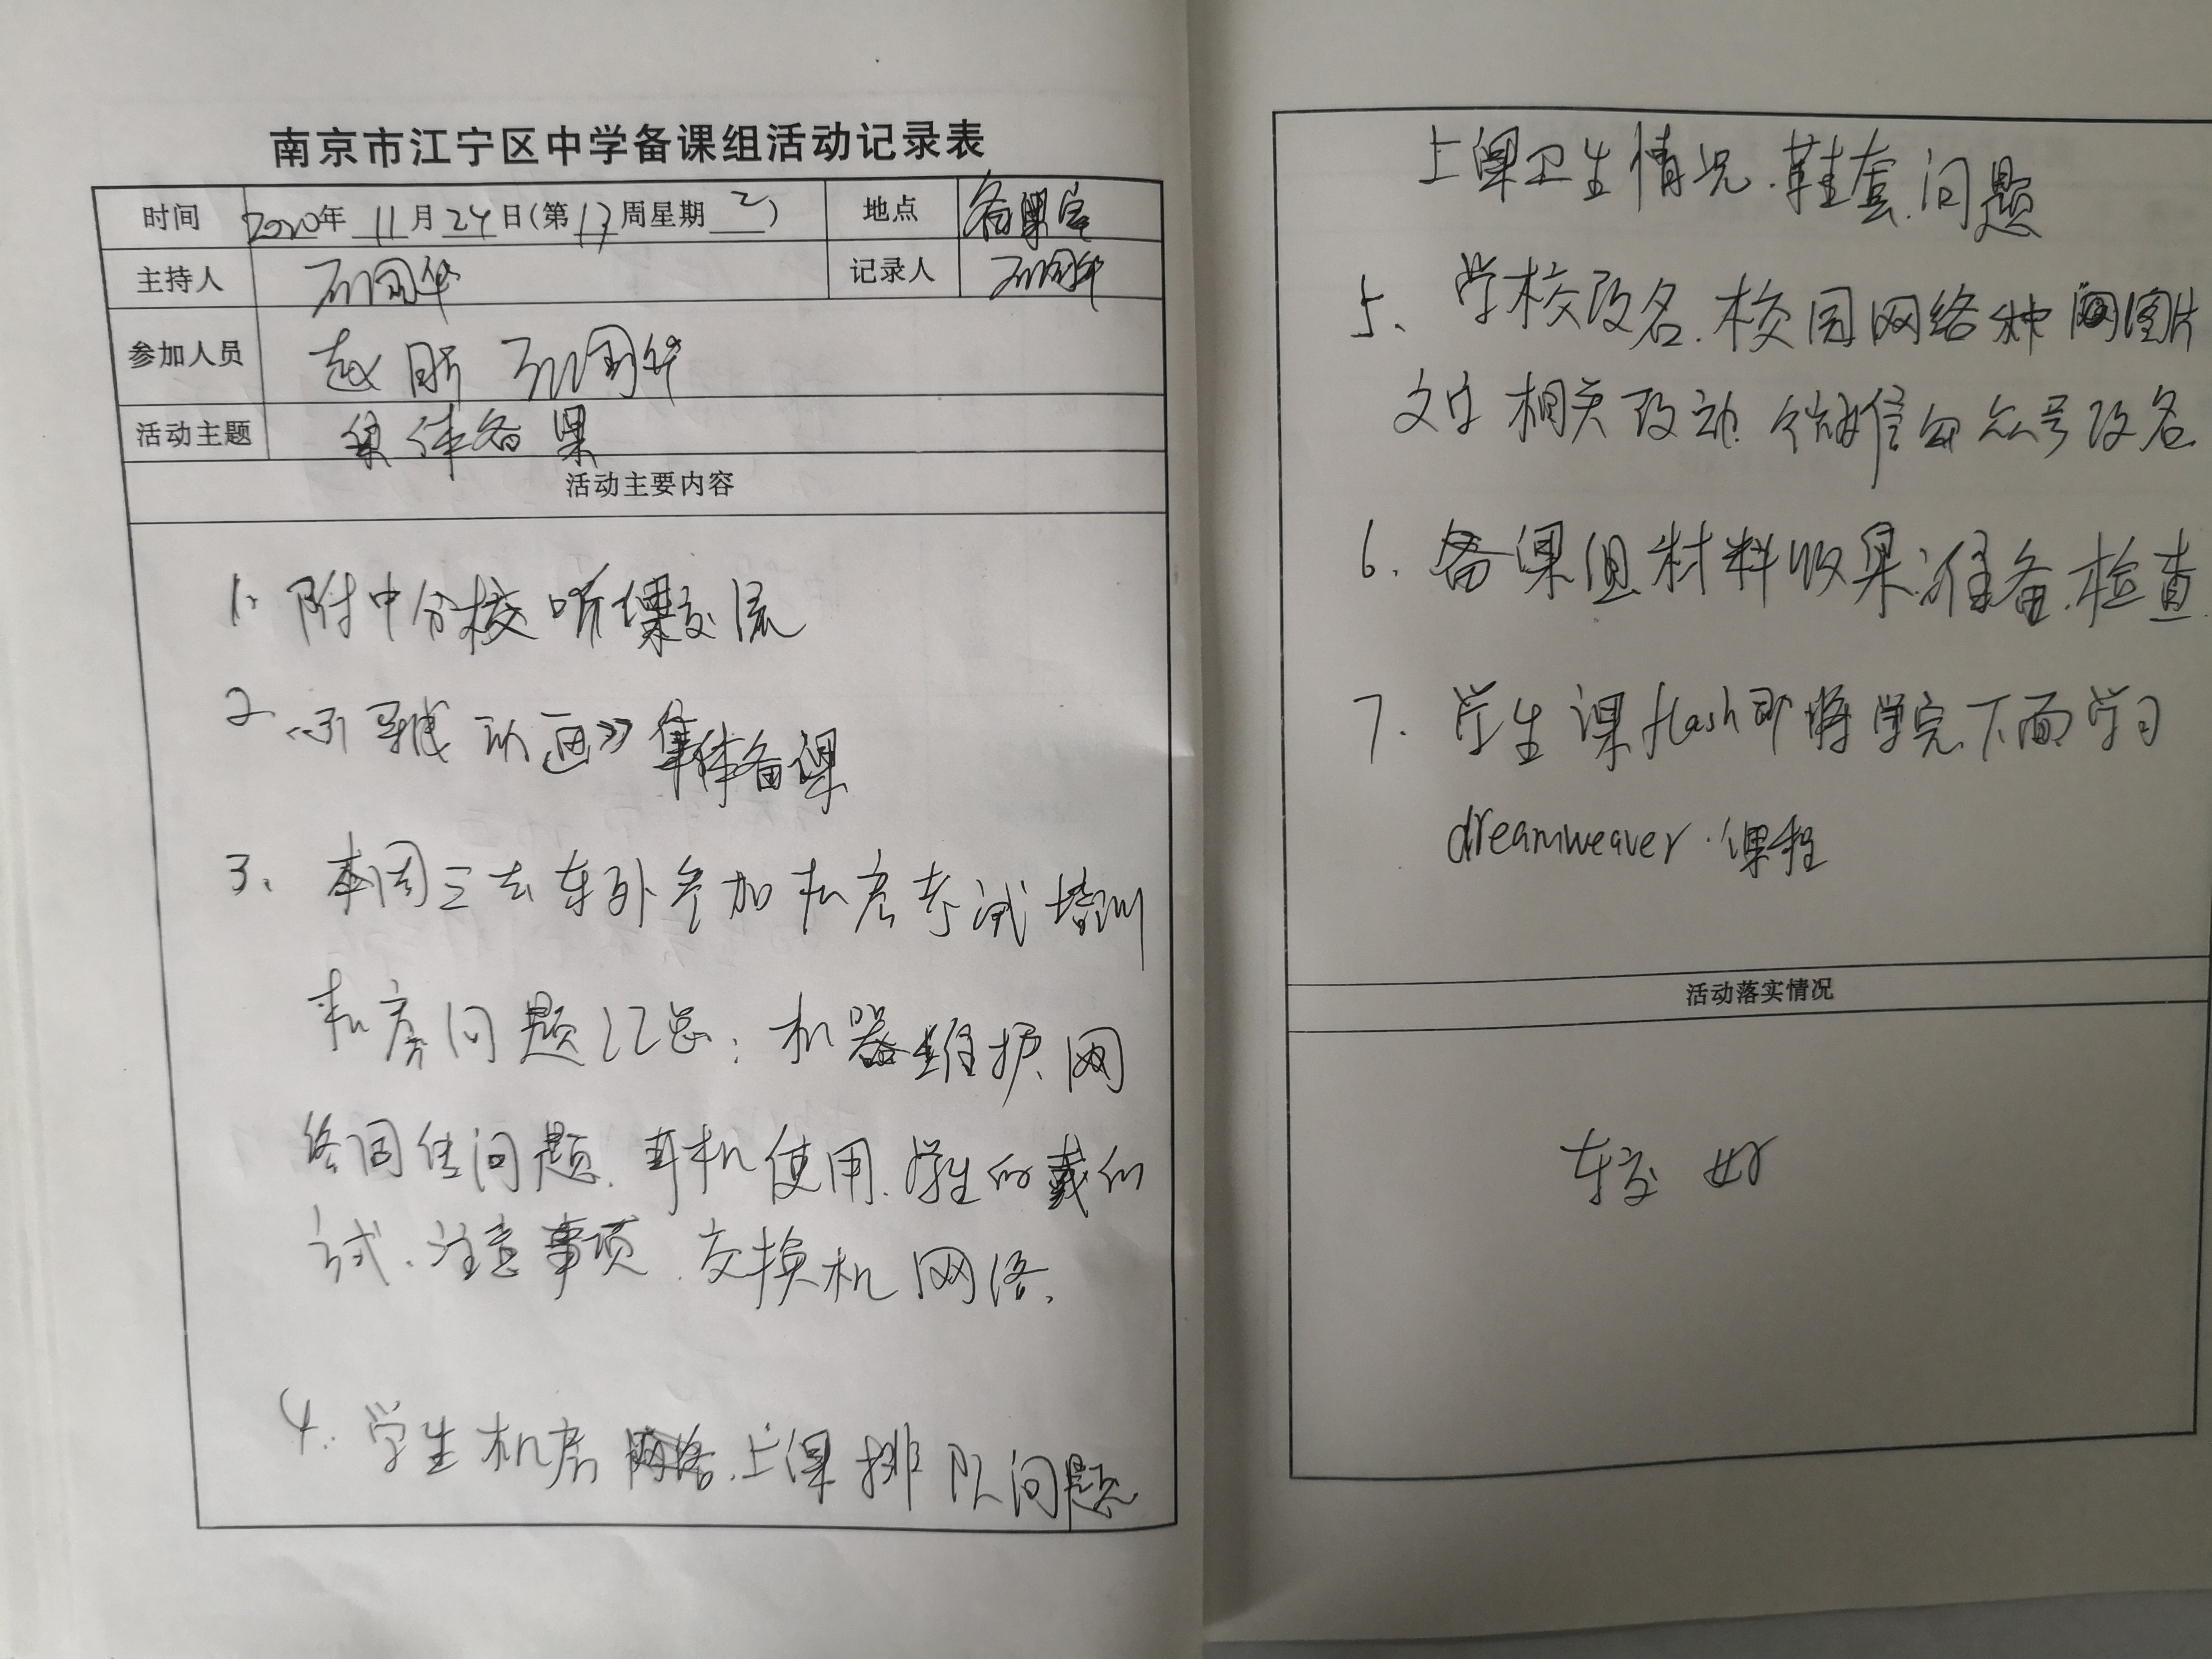 南京市江宁区中学备课组活动记录表
时间 2020年 11月24日(第13周星期二) 地点 备课室
主持人 记录人
参加人员 赵昕
活动主题 集体备课
活动主要内容
1. 附中分校听课交流
2. 《引导线动画》集体备课
3、本周三去东外参加机房考试培训
机房问题汇总：机器维护、网
络问题、耳机使用、学生的戴
试、注意事项、交换机网络、
4. 学生机房网络、上课排队问题
上课卫生情况、鞋套问题
5、学校改名、校园网络图片
文字相关改动、微信公众号改名
6. 备课组材料收集准备、检查
7. 学生课flash即将学完下面学习
dreamweaver 课程
活动落实情况
较好